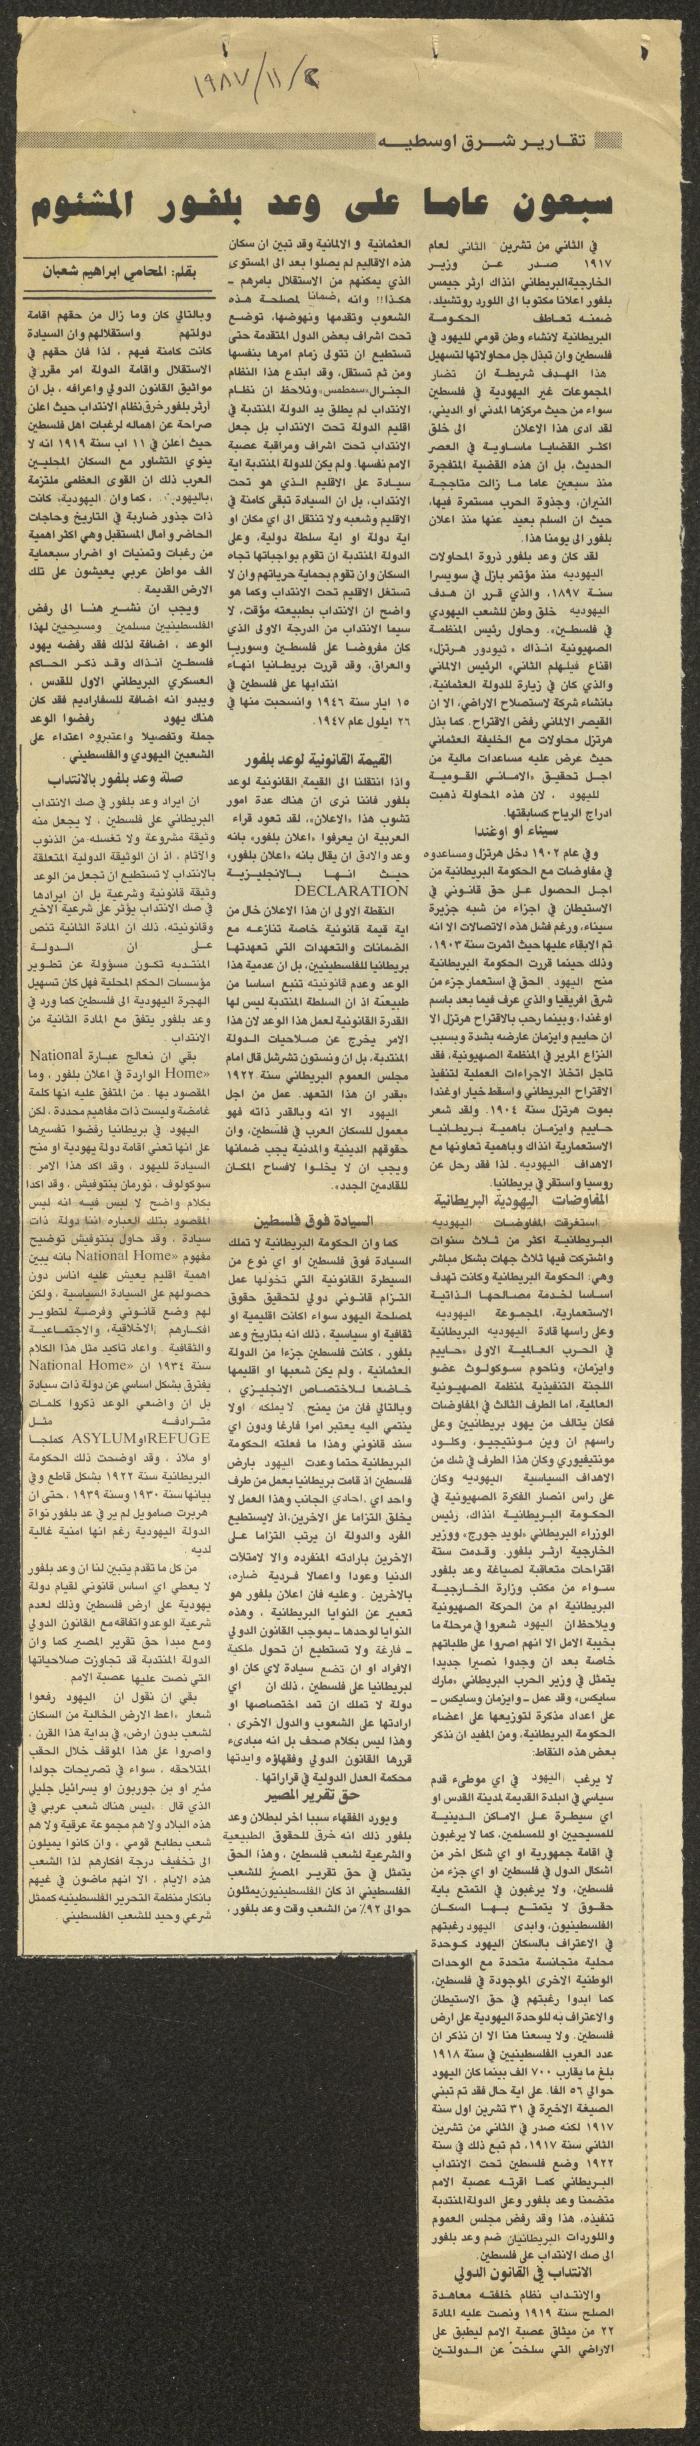 ١٩٨٧/١١/٢
تقارير شرق اوسطيه
سبعون عاما على وعد بلفور المشئوم
في الثاني من تشرين الثاني لعام
١٩١٧ صدر عن وزير
الخارجية البريطاني انذاك ارثر جيمس
بلفور اعلانا مكتوبا الى اللورد روتشيلد،
ضمنه تعاطف الحكومة
البريطانية لانشاء وطن قومي لليهود في
فلسطين وان تبذل جل محاولاتها لتسهيل
هذا الهدف شريطة ان تضار
المجموعات غير اليهودية في فلسطين
سواء من حيث مركزها المدني او الديني،
لقد ادى هذا الاعلان الى خلق
اكثر القضايا ماساوية في العصر
الحديث، بل ان هذه القضية المتفجرة
منذ سبعين عاما ما زالت متاججة
النيران، وجذوة الحرب مستمرة فيها،
حيث ان السلم بعيد عنها منذ اعلان
بلفور الى يومنا هذا.
لقد كان وعد بلفور ذروة المحاولات
اليهوديه منذ مؤتمر بازل في سويسرا
سنة ١٨٩٧، والذي قرر ان هدف
اليهوديه خلق وطن للشعب اليهودي
في فلسطين». وحاول رئيس المنظمة
الصهيونية انذاك « تيودور هرتزل»
اقناع فيلهلم الثاني» الرئيس الالماني
والذي كان في زيارة للدولة العثمانية،
بانشاء شركة لاستصلاح الاراضي، الا ان
القيصر الالماني رفض الاقتراح. كما بذل
هرتزل محاولات مع الخليفة العثماني
حيث عرض عليه مساعدات مالية من
اجل تحقيق «الاماني القومية
لليهود ، لان هذه المحاولة ذهبت
ادراج الرياح كسابقتها.
سيناء او اوغندا
وفي عام ١٩٠٢ دخل هرتزل ومساعدوه
في مفاوضات مع الحكومة البريطانية من
اجل الحصول على حق قانوني في
الاستيطان في اجزاء من شبه جزيرة
سيناء، ورغم فشل هذه الاتصالات الا انه
تم الابقاء عليها حيث اثمرت سنة ١٩٠٣،
وذلك حينما قررت الحكومة البريطانية
منح اليهود الحق في استعمار جزء من
شرق افريقيا والذي عرف فيما بعد باسم
اوغندا، وبينما رحب بالاقتراح هرتزل الا
ان حاييم وايزمان عارضه بشدة وبسبب
النزاع المرير في المنظمة الصهيونية، فقد
تاجل اتخاذ الاجراءات العملية لتنفيذ
الاقتراح البريطاني واسقط خيار اوغندا
بموت هرتزل سنة ١٩٠٤. ولقد شعر
حاييم وايزمان باهمية بريطانيا
الاستعمارية انذاك وباهمية تعاونها مع
الاهداف اليهوديه. لذا فقد رحل عن
روسيا واستقر في بريطانيا.
المفاوضات اليهودية البريطانية
استغرقت المفاوضات اليهوديه
البريطانية اكثر من ثلاث سنوات
واشتركت فيها ثلاث جهات بشكل مباشر
وهي: الحكومة البريطانية وكانت تهدف
اساسا لخدمة مصالحها الذاتية
الاستعمارية، المجموعة اليهوديه
وعلى راسها قادة اليهوديه البريطانية
في الحرب العالمية الاولى «حاييم
وايزمان» وناحوم سوكولوث عضو
اللجنة التنفيذية لمنظمة الصهيونية
العالمية، اما الطرف الثالث في المفاوضات
فكان يتالف من يهود بريطانيين وعلى
راسهم ان وين مونتيجيو، وكلود
مونتيفيوري وكان هذا الطرف في شك من
الاهداف السياسية اليهوديه وكان
على راس انصار الفكرة الصهيونية في
الحكومة البريطانية انذاك، رئيس
الوزراء البريطاني «لويد جورج» ووزير
الخارجية ارثر بلفور. وقدمت ستة
اقتراحات متعاقبة لصياغة وعد بلفور
سواء من مكتب وزارة الخارجية
البريطانية ام من الحركة الصهيونية
ويلاحظ ان اليهود شعروا في مرحلة ما
بخيبة الامل الا انهم اصروا على طلباتهم
خاصة بعد ان وجدوا نصيرا جديدا
يتمثل في وزير الحرب البريطاني «مارك
سايكس» وقد عمل - وايزمان وسايكس -
على اعداد مذكرة لتوزيعها على اعضاء
الحكومة البريطانية، ومن المفيد ان نذكر
بعض هذه النقاط:
لا يرغب اليهود في اي موطىء قدم
سياسي في البلدة القديمة لمدينة القدس او
اي سيطرة على الاماكن الدينية
للمسيحيين او للمسلمين، كما لا يرغبون
في اقامة جمهورية او اي شكل اخر من
اشكال الدول في فلسطين او اي جزء من
فلسطين، ولا يرغبون في التمتع باية
حقوق لا يتمتع بها السكان
الفلسطينيون، وابدى اليهود رغبتهم
في الاعتراف بالسكان اليهود كوحدة
محلية متجانسة متحدة مع الوحدات
الوطنية الاخرى الموجودة في فلسطين،
كما ابدوا رغبتهم في حق الاستيطان
والاعتراف به للوحدة اليهودية على ارض
فلسطين. ولا يسعنا هنا الا ان نذكر ان
عدد العرب الفلسطينيين في سنة ١٩١٨
بلغ ما يقارب ٧٠٠ الف بينما كان اليهود
حوالي ٥٦ الفا. على اية حال فقد تم تبني
الصيغة الاخيرة في ٣١ تشرين اول سنة
١٩١٧ لكنه صدر في الثاني من تشرين
الثاني سنة ١٩١٧، ثم تبع ذلك في سنة
١٩٢٢ وضع فلسطين تحت الانتداب
البريطاني كما اقرته عصبة الامم
متضمنا وعد بلفور وعلى الدولة المنتدبة
تنفيذه، هذا وقد رفض مجلس العموم
واللوردات البريطانيان ضم وعد بلفور
الى صك الانتداب على فلسطين.
الانتداب في القانون الدولي
والانتداب نظام خلفته معاهدة
الصلح سنة ١٩١٩ ونصت عليه المادة
٢٢ من ميثاق عصبة الامم ليطبق على
الاراضي التي سلخت عن الدولتين
العثمانية و الالمانية وقد تبين ان سكان
هذه الاقاليم لم يصلوا بعد الى المستوى
الذي يمكنهم من الاستقلال بامرهم -
هكذا!! وانه «ضمانا لمصلحة هذه
الشعوب وتقدمها ونهوضها، توضع
تحت اشراف بعض الدول المتقدمة حتى
تستطيع ان تتولى زمام امرها بنفسها
ومن ثم تستقل، وقد ابتدع هذا النظام
الجنرال «سمطس» ونلاحظ ان نظام
الانتداب لم يطلق يد الدولة المنتدبة في
اقليم الدولة تحت الانتداب بل جعل
الانتداب تحت اشراف ومراقبة عصبة
الامم نفسها. ولم يكن للدولة المنتدبة اية
سيادة على الاقليم الذي هو تحت
الانتداب، بل ان السيادة تبقى كامنة في
الاقليم وشعبه ولا تنتقل الى اي مكان او
اية دولة او اية سلطة دولية، وعلى
الدولة المنتدبة ان تقوم بواجباتها تجاه
السكان وان تقوم بحماية حرياتهم وان لا
تستغل الاقليم تحت الانتداب وكما هو
واضح ان الانتداب بطبيعته مؤقت، لا
سيما الانتداب من الدرجة الاولى الذي
كان مفروضا على فلسطين وسوريا
والعراق، وقد قررت بريطانيا انهاء
انتدابها على فلسطين في
١٥ ايار سنة ١٩٤٦ وانسحبت منها في
٢٦ ايلول عام ١٩٤٧.
القيمة القانونية لوعد بلفور
واذا انتقلنا الى القيمة القانونية لوعد
بلفور فاننا نرى ان هناك عدة امور
تشوب هذا «الاعلان»، لقد تعود قراء
العربية ان يعرفوا «اعلان بلفور» بانه
وعد والادق ان يقال بانه «اعلان بلفور»
حيث انها بالانجليزية
DECLARATION
النقطة الاولى ان هذا الاعلان خال من
اية قيمة قانونية خاصة تنازعه مع
الضمانات والتعهدات التي تعهدتها
بريطانيا للفلسطينيين، بل ان عدمية هذا
الوعد وعدم قانونيته تنبع اساسا من
طبيعته اذ ان السلطة المنتدبة ليس لها
القدرة القانونية لعمل هذا الوعد لان هذا
الامر يخرج عن صلاحيات الدولة
المنتدبة، بل ان ونستون تشرشل قال امام
مجلس العموم البريطاني سنة ١٩٢٢
«بقدر ان هذا التعهد. عمل من اجل
اليهود الا انه وبالقدر ذاته فهو
معمول للسكان العرب في فلسطين، وان
حقوقهم الدينية والمدنية يجب ضمانها
ويجب ان لا يخلوا لافساح المكان
للقادمين الجدد».
السيادة فوق فلسطين
كما وان الحكومة البريطانية لا تملك
السيادة فوق فلسطين او اي نوع من
السيطرة القانونية التي تخولها عمل
التزام قانوني دولي لتحقيق حقوق
لمصلحة اليهود سواء اكانت اقليمية او
ثقافية او سياسية ، ذلك انه بتاريخ وعد
بلفور ، كانت فلسطين جزءا من الدولة
العثمانية ، ولم يكن شعبها او اقليمها
خاضعا للاختصاص الانجليزي ،
وبالتالي فان من يمنح لا يملكه اولا
ينتمي اليه يعتبر امرا فارغا ودون اي
سند قانوني وهذا ما فعلته الحكومة
البريطانية حتما وعدت اليهود بارض
فلسطين اذ قامت بريطانيا بعمل من طرف
واحد اي احادي الجانب وهذا العمل لا
يخلق التزاما على الاخرين، اذ لا يستطيع
الفرد والدولة ان يرتب التزاما على
الاخرين بارادته المنفردة والا لامتلات
الدنيا وعودا واعمالا فردية ضاره،
بالاخرين . وعليه فان اعلان بلفور هو
تعبير عن النوايا البريطانية ، وهذه
النوايا لوحدها - بموجب القانون الدولي
- فارغة ولا تستطيع ان تحول ملكية
الافراد او ان تضع سيادة لاي كان او
لبريطانيا على فلسطين ، ذلك ان اي
دولة لا تملك ان تمد اختصاصها او
ارادتها على الشعوب والدول الاخرى ،
وهذا ليس بكلام صحف بل انه مبادىء
قررها القانون الدولي وفقهاؤه وايدتها
محكمة العدل الدولية في قراراتها .
حق تقرير المصير
ويورد الفقهاء سببا اخر لبطلان وعد
بلفور ذلك انه خرق للحقوق الطبيعية
والشرعية لشعب فلسطين ، وهذا الحق
يتمثل في حق تقرير المصير للشعب
الفلسطيني اذ كان الفلسطينيون يمثلون
حوالي ٩٢٪ من الشعب وقت وعد بلفور ،
بقلم: المحامي ابراهيم شعبان
وبالتالي كان وما زال من حقهم اقامة
دولتهم واستقلالهم وان السيادة
كانت كامنة فيهم ، لذا فان حقهم في
الاستقلال واقامة الدولة امر مقرر في
مواثيق القانون الدولي واعرافه ، بل ان
ارثر بلفور خرق نظام الانتداب حيث اعلن
صراحة عن اهماله لرغبات اهل فلسطين
حيث اعلن في ١١ اب سنة ١٩١٩ انه لا
ينوي التشاور مع السكان المحليين
العرب ذلك ان القوى العظمى ملتزمة
«باليهود ، كما وان اليهودية، كانت
ذات جذور ضاربة في التاريخ وحاجات
الحاضر و آمال المستقبل وهي اكثر اهمية
من رغبات وتمنيات او اضرار سبعماية
الف مواطن عربي يعيشون على تلك
الارض القديمة .
ويجب ان نشير هنا الى رفض
الفلسطينيين مسلمين ومسيحيين لهذا
الوعد ، اضافة لذلك فقد رفضه يهود
فلسطين انذاك وقد ذكر الحاكم
العسكري البريطاني الاول للقدس ،
ويبدو انه اضافة للسفاراديم فقد كان
هناك يهود رفضوا الوعد
جملة وتفصيلا واعتبروه اعتداء على
الشعبين اليهودي والفلسطيني .
صلة وعد بلفور بالانتداب
ان ايراد وعد بلفور في صك الانتداب
البريطاني على فلسطين ، لا يجعل منه
وثيقة مشروعة ولا تغسله من الذنوب
والآثام ، اذ ان الوثيقة الدولية المتعلقة
بالانتداب لا تستطيع ان تجعل من الوعد
وثيقة قانونية وشرعية بل ان ايرادها
في صك الانتداب يؤثر على شرعية الاخير
وقانونيته، ذلك ان المادة الثانية تنص
على ان الدولة
المنتدبه تكون مسؤولة عن تطوير
مؤسسات الحكم المحلية فهل كان تسهيل
الهجرة اليهودية الى فلسطين كما ورد في
وعد بلفور يتفق مع المادة الثانية من
الانتداب .
بقي ان نعالج عبارة National
Home» الواردة في اعلان بلفور ، وما
المقصود بها . من المتفق عليه انها كلمة
غامضة وليست ذات مفاهيم محددة ، لكن
اليهود في بريطانيا رفضوا تفسيرها
على انها تعني اقامة دولة يهودية او منح
السيادة لليهود ، وقد اكد هذا الامر :
سوكولوف ، نورمان بنتوفيش ، وقد اكدا
بكلام واضح لا لبس فيه انه ليس
المقصود بتلك العباره اننا دولة ذات
سيادة ، وقد حاول بنتوفيش توضيح
مفهوم «National Home بانه يبين
اهمية اقليم يعيش عليه اناس دون
حصولهم على السيادة السياسية ، ولكن
لهم وضع قانوني وفرصة لتطوير
افكارهم الاخلاقية، والاجتماعية
والثقافية . واعاد تاكيد مثل هذا الكلام
سنة ١٩٣٤ ان «National Home
يفترق بشكل اساسي عن دولة ذات سيادة
بل ان واضعي الوعد ذكروا كلمات
مترادفه مثل
REFUGE او ASYLUM كملجا
او ملاذ ، وقد اوضحت ذلك الحكومة
البريطانية سنة ١٩٢٢ بشكل قاطع وفي
بيانها سنة ١٩٣٠ وسنة ١٩٣٩ ، حتى ان
هربرت صامويل لم ير في عد بلفور نواة
الدولة اليهودية رغم انها امنية غالية
لديه .
من كل ما تقدم يتبين لنا ان وعد بلفور
لا يعطي اي اساس قانوني لقيام دولة
يهودية على ارض فلسطين وذلك لعدم
شرعية الوعد واتفاقه مع القانون الدولي
ومع مبدا حق تقرير المصير كما وان
الدولة المنتدبة قد تجاوزت صلاحياتها
التي نصت عليها عصبة الامم .
بقي ان نقول ان اليهود رفعوا
شعار «اعط الارض الخالية من السكان
لشعب بدون ارض» في بداية هذا القرن ،
واصروا على هذا الموقف خلال الحقب
المتلاحقه ، سواء في تصريحات جولدا
مئير او بن جوريون او يسرائيل جليلي
الذي قال : «ليس هناك شعب عربي في
هذه البلاد ولا هم مجموعة عرقية ولا هم
شعب بطابع قومي ، وان كانوا يميلون
الى تخفيف درجة افكارهم لذا الشعب
هذه الايام ، الا انهم ماضون في غيهم
بانكار منظمة التحرير الفلسطينيه كممثل
شرعي وحيد للشعب الفلسطيني .